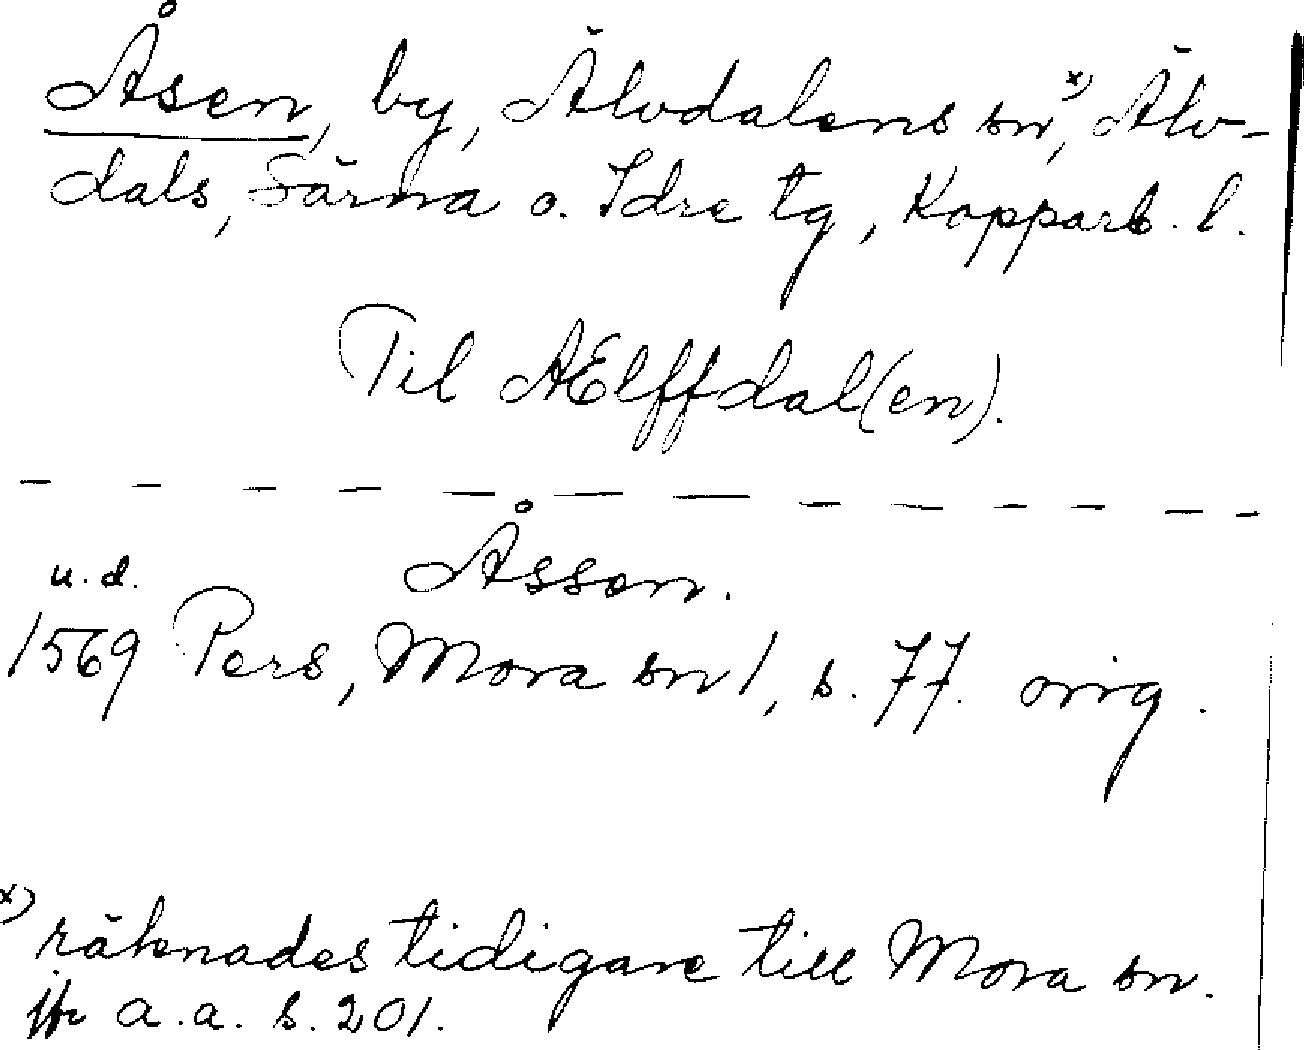 Åsen, by, Älvdalens sn,x) Älv-
dals, Särna o. Idre tg, Kopparb. l.
Til AElffdal(en).
Åssen.
u.d.
1569 Pers, Mora sn 1, s. 77. orig.
x) räknades tidigare till Mora sn.
jfr a.a. s. 201.